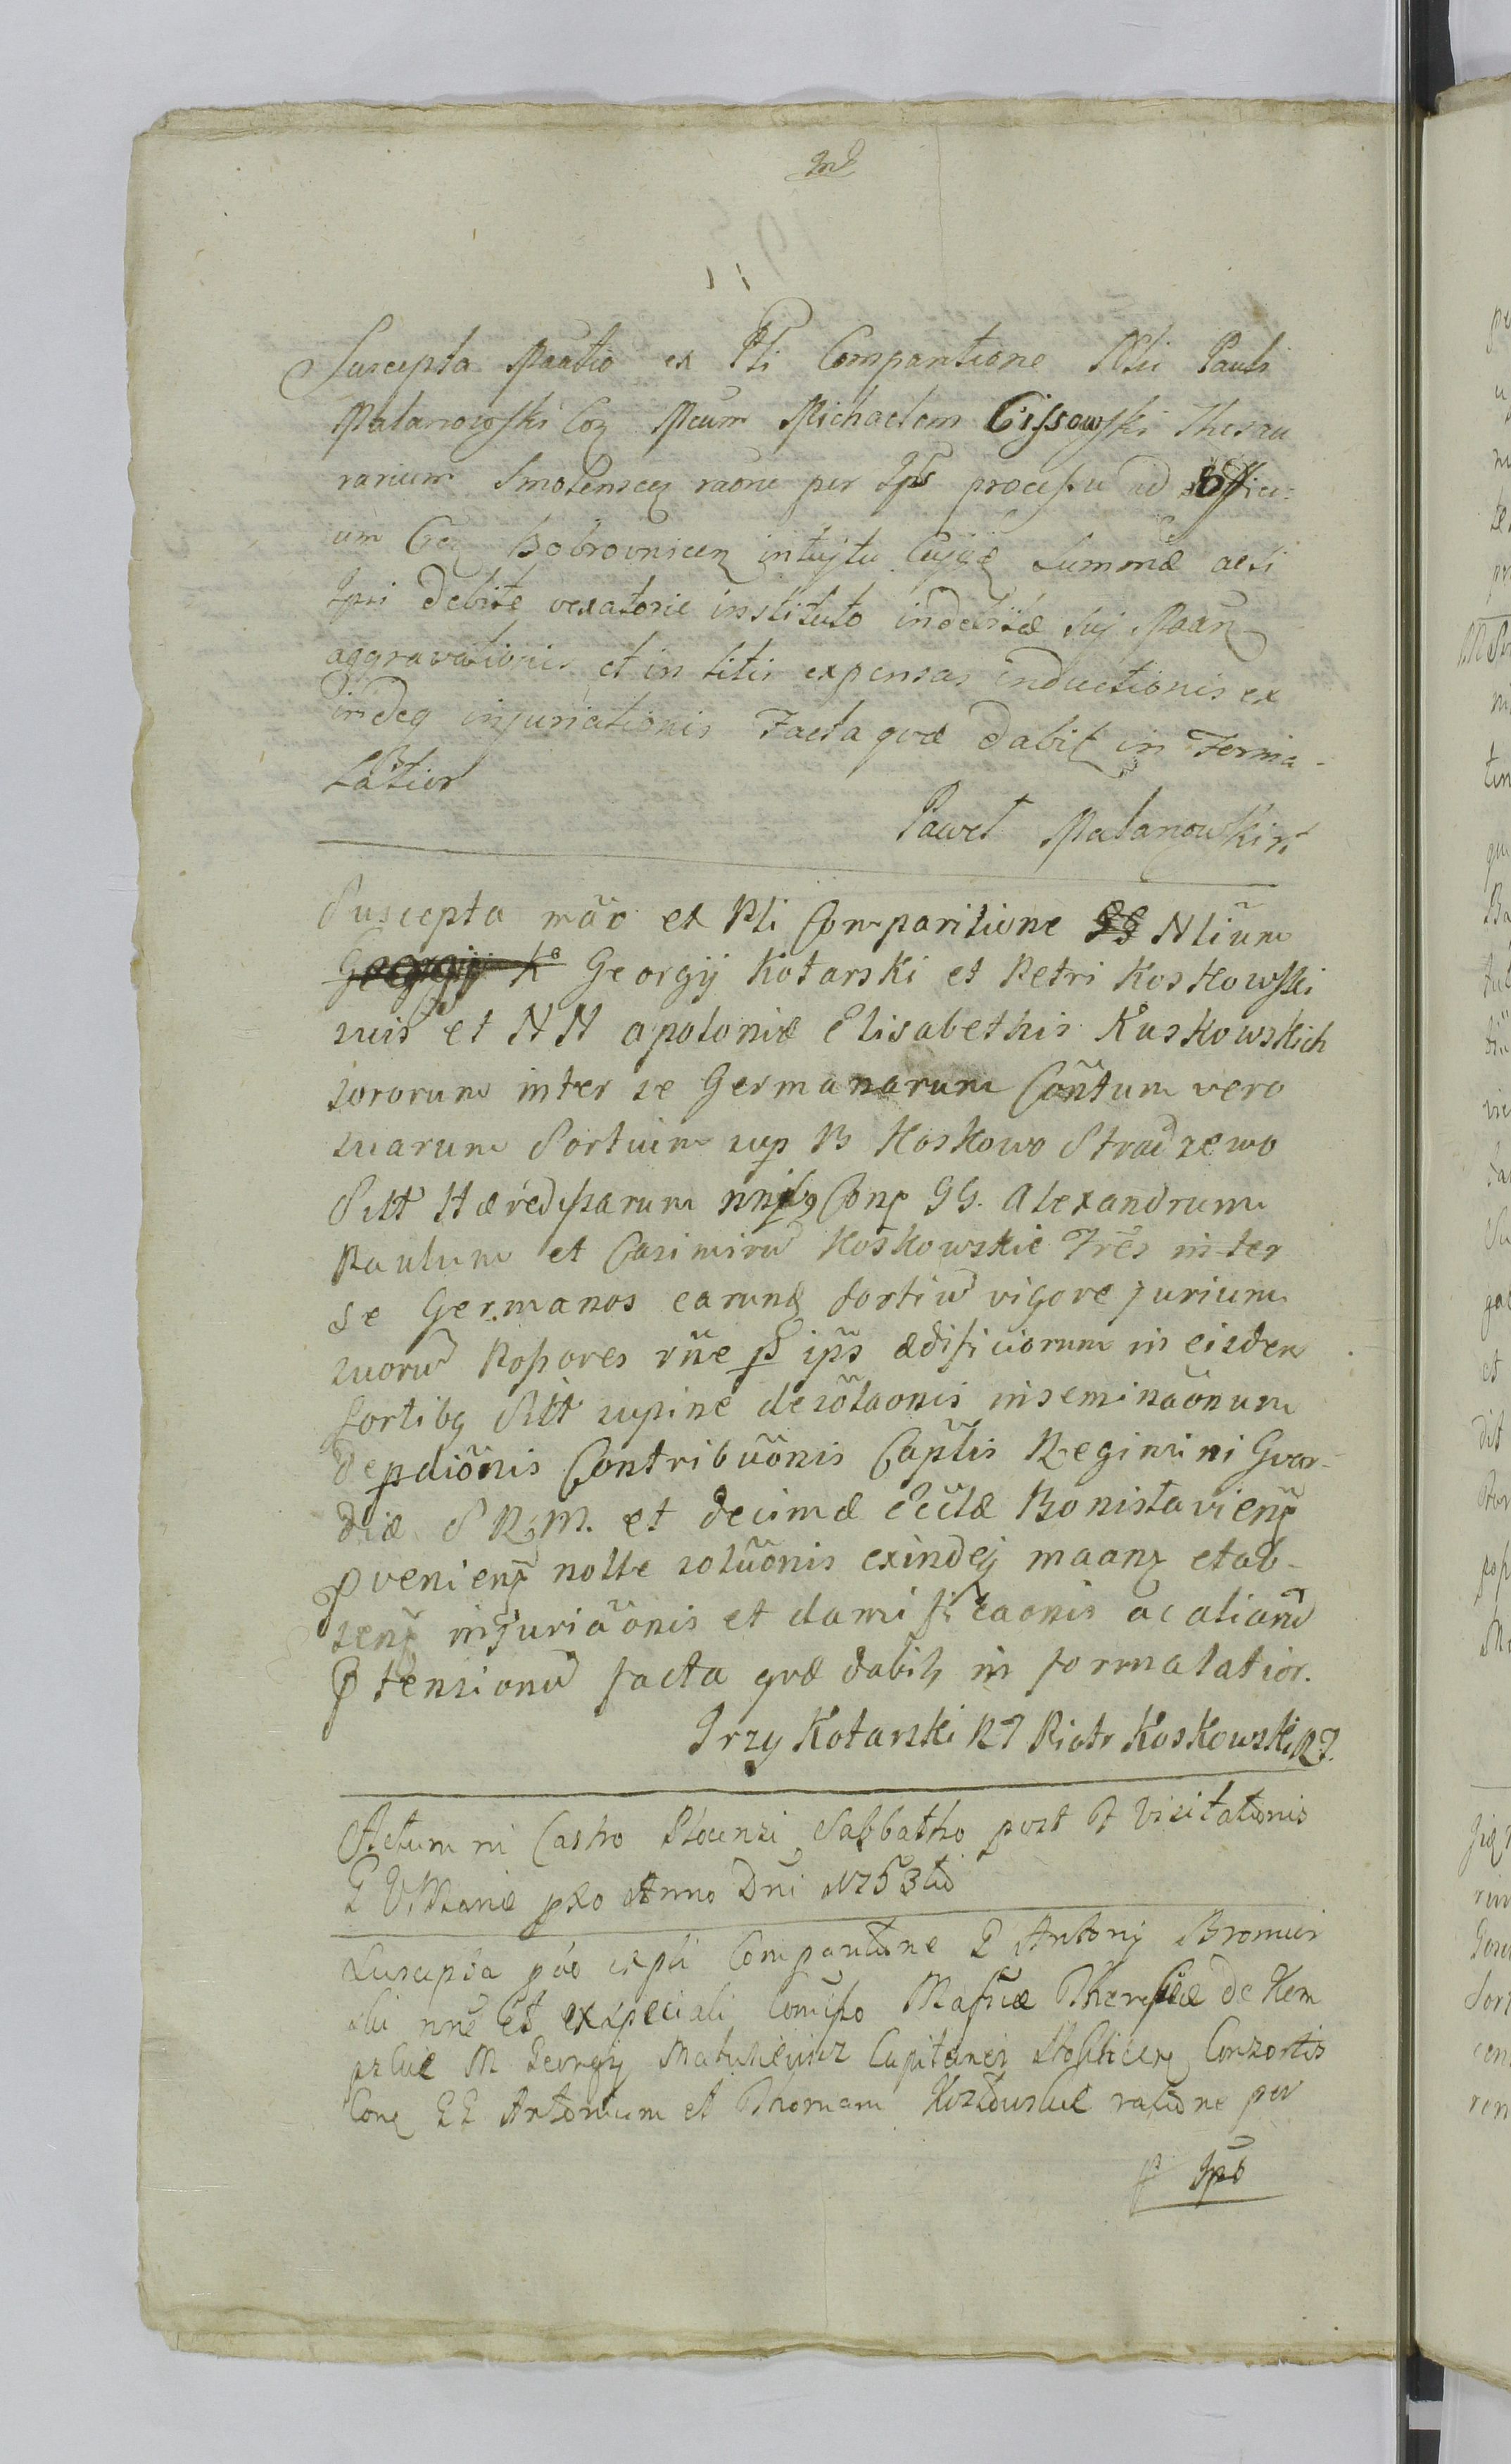 Suscepta Maatio ex Pli Comparitione Nlii Pauli
Malanowski Con Mcum Michaelem Cissowski Thesau
rarium Smolenscen raone per Ips processu ad Offici=
um Cen Bobrovnicen intujtu Cujqe Summæ acsi
Ipsi debite vexatorie instituto indebitæ suj Maan
aggravationis et in litis expensas inductionis ex
indeq injuriationis Facta qvæ dabit in Forma-
Latior
Paweł Malanowski
Suscepta mão ex Pli Comparitione GG Nliũm
Georgij K Georgij Kotarski et Petri Koskowski
suis et NN apoloniæ Elisabethis Kuskowskich
sororum inter se Germanarum Cõntum vero
suarum Sortium sup B Koskowo Stradzewo
Sitt Hæredissarum Conz GG. Alexandrum
Paulum et Casimirũ Koskowskie Frẽs inter
se Germanos earund sortiũ vigore jurium
suorũ Possores rñe p ipš ædificiorum in eisdem
sortibq Sitt supine desõlaonis inseminãonum
depdiõnis Contribuõnis Capĩtlis Regimini Gvar-
diæ S R M. et decimæ Ecclæ Bonislavienz
pvenienz nolle solũonis exindej maanz et ab-
senz injuriãonis et damnificaonis ac aliarũ
Ptensionũ facta qvæ dabit in forma latior.
Jrzy Kotarski Piotr Koskowski
Actum in Castro Plocensi Sabbatho post F Visitationis
B V Mariæ pxo Anno Dni 1753tio
Suscepta põo expli Comparitine G Antonij Bromir
ski nne Et ex speciali Comisso Mafičæ Theresiæ de Kem
pskie M Georgij Matuszewicz Capitanei Stoklicen Consortis
Conz GG Antonium et Thomam Kozłowskie ratione per
Ips